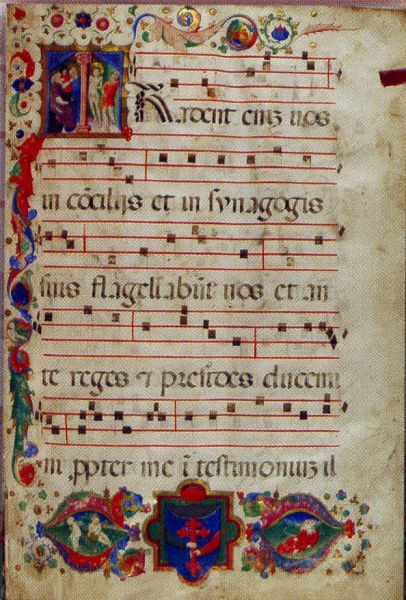 Tradent enim vos
in cōcilijs et in synagogis
suis flagellabūt vos et an
te reges et presides ducemi
ni ,ppter me ī testimoniuz il